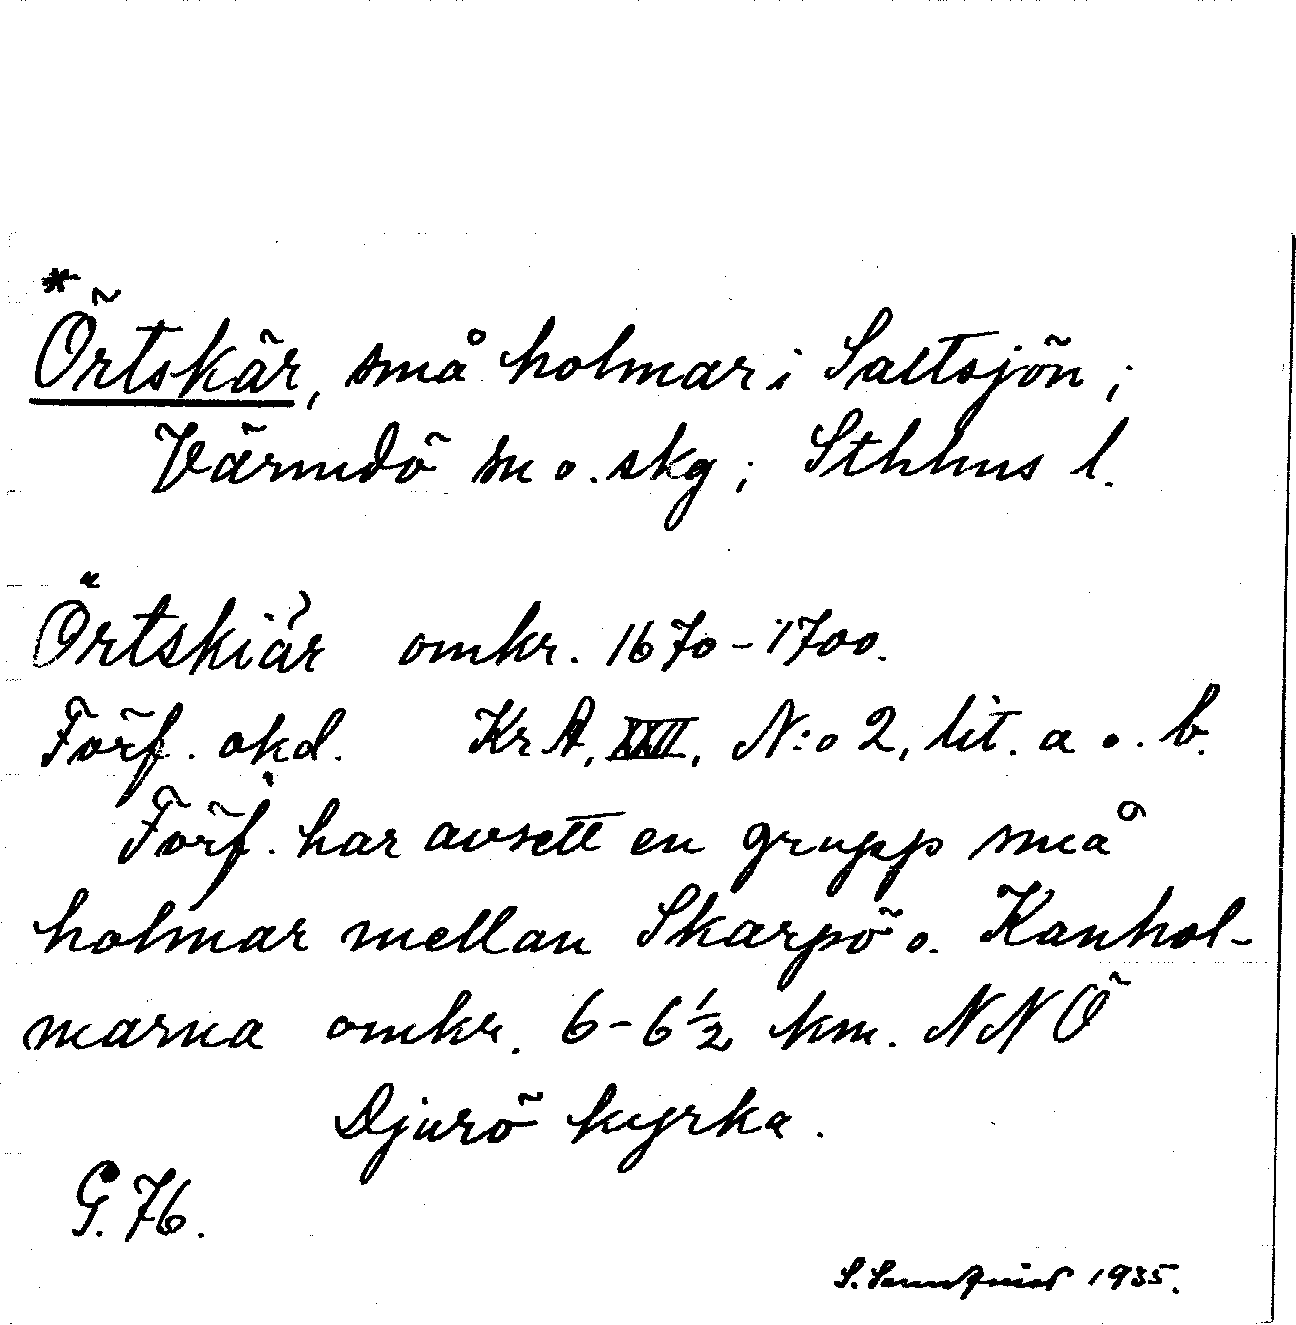 *
Örtskär, små holmar i Saltsjön;
Värmdö sn o. skg; Sthlms l.
Örtskiär omkr. 1670-1700.
Förf. okd. KrA, XXII, N:o 2, lit. a o. b.
Förf. har avsett en grupp små
holmar mellan Skarpö o. Kanhol-
marna omkr. 6-6½ km. NNÖ
Djurö kyrka.
G. 76.
S. 1935.